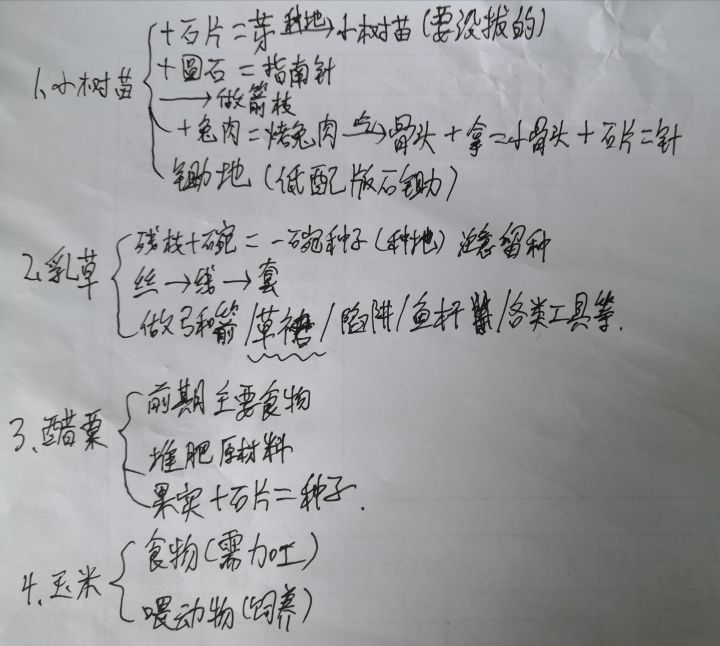 1、小树苗
+石片=芽 种地→小树苗(要没拔的)
+圆石=指南针
→做箭枝
+兔肉=烤兔肉 吃→骨头+拿=小骨头+石片=针
锄地(低配版石锄)
2、乳草
残枝+石碗=一石碗种子(种地)注意留种
丝→线→套
做弓和箭/草裙/陷阱/鱼杆/各类工具等.
3、醋栗
前期主要食物
堆肥原材料
果实+石片=种子.
4、玉米
食物(需加工)
喂动物(饲养)